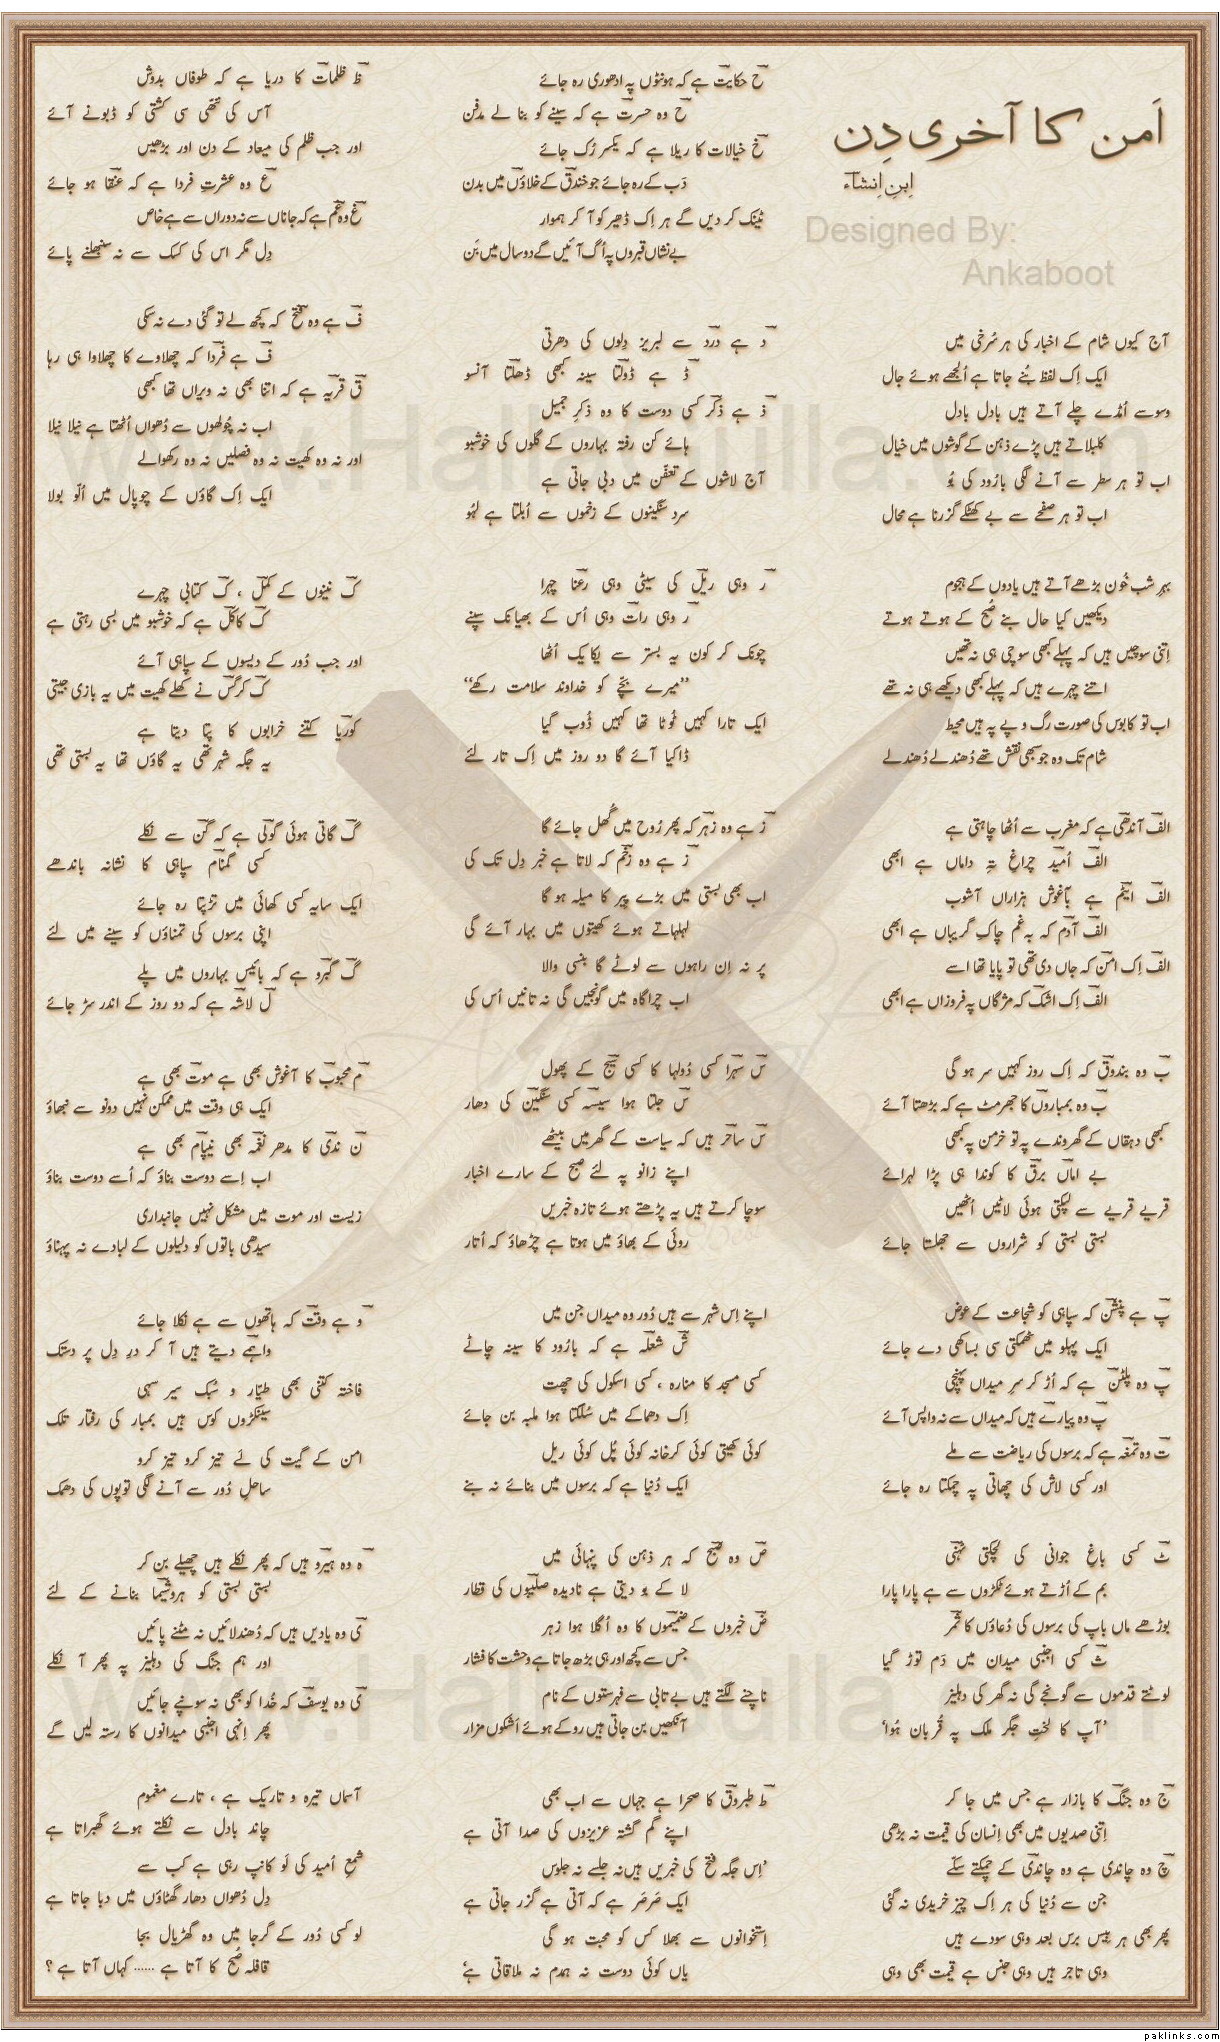 اَمن کا آخری دِن
اِبنِ اِنشاء
Designed By:
Ankaboot
آج کیوں شام کے اخبار کی ہر سُرخی میں
ایک اِک لفظ بُنے جاتا ہے اُلجھے ہوئے جال
وسوسے اُمڈے چلے آتے ہیں بادل بادل
کلبلاتے ہیں پڑے ذہن کے گوشوں میں خیال
اب تو ہر سطر سے آنے لگی بارُود کی بُو
اب تو ہر صفحے سے بے کھٹکے گزرنا ہے محال
بہرِ شب خُون بڑھے آتے ہیں یادوں کے ہجوم
دیکھیں کیا حال بنے صُبح کے ہوتے ہوتے
اِتنی سوچیں ہیں کہ پہلے کبھی سوچی ہی نہ تھیں
اِتنے چہرے ہیں کہ پہلے کبھی دیکھے ہی نہ تھے
اب تو کابوس کی صورت رگ و پے پہ ہیں محیط
شام تک وہ جو سبھی نقش تھے دُھندلے دُھندلے
الف آندھی ہے کہ مغرب سے اُٹھا چاہتی ہے
الف اُمید چراغِ تہِ داماں ہے ابھی
الف ایٹم ہے بآغوش ہزاراں آشوب
الف آدم کہ بہ غم چاک گریباں ہے ابھی
الف اِک امن کہ جاں دی تھی تو پایا تھا اسے
الف اِک اشک کہ مژگاں پہ فروزاں ہے ابھی
ب وہ بندوق کہ اِک روز کہیں سر ہو گی
ب وہ بمباروں کا جھرمٹ ہے کہ بڑھتا آئے
کبھی دہقاں کے گھروندے پہ تو خرمن پہ کبھی
بے اماں برق کا کوندا ہی پڑا لہرائے
قریے قریے سے لپکتی ہوئی لاٹیں اُٹھیں
بستی بستی کو شراروں سے جھلستا جائے
پ ہے پنشن کہ سپاہی کو شجاعت کے عوض
ایک پہلو میں ٹھمکتی سی بساکھی دے جائے
پ وہ پلٹن ہے کہ اُڑ کر سرِ میداں پہنچی
پ وہ پیارے ہیں کہ میداں سے نہ واپس آئے
ت وہ تمغہ ہے کہ برسوں کی ریاضت سے ملے
اور کسی لاش کی چھاتی پہ چمکتا رہ جائے
ٹ کسی باغِ جوانی کی لچکتی ٹہنی
بم کے اُڑتے ہوئے ٹکڑوں سے ہے پارا پارا
بوڑھے ماں باپ کی برسوں کی دُعاؤں کا ثمر
ث کسی اجنبی میدان میں دَم توڑ گیا
لوٹتے قدموں سے گونجے گی نہ گھر کی دہلیز
’آپ کا لختِ جگر ملک پہ قُربان ہُوا‘
ج وہ جنگ کا بازار ہے جس میں جا کر
اِتنی صدیوں میں بھی اِنسان کی قیمت نہ بڑھی
چ وہ چاندی ہے وہ چاندی کے چمکتے سکّے
جن سے دُنیا کی ہر اِک چیز خریدی نہ گئی
پھر بھی ہر بیس برس بعد وہی سودے ہیں
وہی تاجر ہیں وہی جنس ہے قیمت بھی وہی
ح حکایت ہے کہ ہونٹوں پہ ادھوری رہ جائے
ح وہ حسرت ہے کہ سینے کو بنا لے مدفن
خ خیالات کا ریلا ہے کہ یکسر رُک جائے
دَب کے رہ جائے جو خندق کے خلاؤں میں بدن
ٹینک کر دیں گے ہر اِک ڈھیر کو آ کر ہموار
بے نشاں قبروں پہ اُگ آئیں گے دو سال میں بَن
د ہے درد سے لبریز دِلوں کی دھرتی
ڈ ہے ڈولتا سینہ کبھی ڈھلتا آنسو
ذ ہے ذکر کسی دوست کا وہ ذکرِ جمیل
ہائے کن رفتہ بہاروں کے گلوں کی خوشبو
آج لاشوں کے تعفّن میں دبی جاتی ہے
سرد سنگینوں کے زخموں سے اُبلتا ہے لہُو
ر وہی ریل کی سیٹی وہی رعنا چہرا
ر وہی رات وہی اُس کے بھیانک سپنے
چونک کر کون یہ بستر سے یکایک اُٹھا
”میرے بچّے کو خداوند سلامت رکھے“
ایک تارا کہیں ٹُوٹا تھا کہیں ڈُوب گیا
ڈاکیا آئے گا دو روز میں اِک تار لئے
ز ہے وہ زہر کہ پھر رُوح میں گُھل جائے گا
ز ہے وہ زخم کہ لاتا ہے خبر دِل تک کی
اب بھی بستی میں بڑے پیر کا میلہ ہو گا
لہلہاتے ہوئے کھیتوں میں بہار آئے گی
پر نہ اِن راہوں سے لوٹے گا بنسی والا
اب چراگاہ میں گونجیں گی نہ تانیں اُس کی
س سہرا کسی دُولہا کا کسی سیج کے پھول
س جلتا ہوا سیسہ کسی سنگین کی دھار
س ساحر ہیں کہ سیاست کے گھر میں بیٹھے
اپنے زانو پہ لئے صبح کے سارے اخبار
سوچا کرتے ہیں یہ پڑھتے ہوئے تازہ خبریں
روئی کے بھاؤ میں ہوتا ہے چڑھاؤ کہ اُتار
اپنے اِس شہر سے ہیں دُور وہ میداں جن میں
ش شعلہ ہے کہ بارُود کا سینہ چاٹے
کسی مسجد کا منارہ ، کسی اسکول کی چھت
اِک دھماکے میں سُلگتا ہوا ملبہ بن جائے
کوئی کھیتی کوئی کرخانہ کوئی پُل کوئی ریل
ایک دُنیا ہے کہ برسوں میں بنائے نہ بنے
ص وہ صبح کہ ہر ذہن کی پنہائی میں
لا کے بو دیتی ہے نادیدہ صلیبوں کی قطار
ض خبروں کے ضمیموں کا وہ اُگلا ہوا زہر
جس سے کچھ اور ہی بڑھ جاتا ہے وحشت کا فشار
ناچنے لگتے ہیں بے تابی سے فہرستوں کے نام
آنکھیں بن جاتی ہیں روکے ہوئے اشکوں مزار
ط طبروق کا صحرا ہے جہاں سے اب بھی
اپنے گم گشتہ عزیزوں کی صدا آتی ہے
’اِس جگہ فتح کی خبریں ہیں نہ جلسے نہ جلوس
ایک صَرصَر ہے کہ آتی ہے گزر جاتی ہے
اِستخوانوں سے بھلا کس کو محبت ہو گی
یاں کوئی دوست نہ ہمدم نہ ملاقاتی ہے‘
ظ ظلمات کا دریا ہے کہ طوفاں بدوش
آس کی ننھی سی کشتی کو ڈبونے آئے
اور جب ظلم کی میعاد کے دن اور بڑھیں
ع وہ عشرتِ فردا ہے کہ عنقا ہو جائے
غ وہ غم ہے کہ جاناں سے نہ دوراں سے ہے خاص
دِل مگر اس کی کسک سے نہ سنبھلنے پائے
ف ہے وہ فتح کہ کچھ لے تو گئی دے نہ سکی
ف ہے فردا کہ چھلاوے کا چھلاوا ہی رہا
ق قریہ ہے کہ اتنا بھی نہ ویراں تھا کبھی
اب نہ چُولھوں سے دُھواں اُٹھتا ہے نیلا نیلا
اور نہ وہ کھیت نہ وہ فصلیں نہ وہ رکھوالے
ایک اِک گاؤں کے چوپال میں اُلّو بولا
ک نینوں کے کمل ، ک کتابی چہرے
ک کاکل ہے کہ خوشبو میں بسی رہتی ہے
اور جب دُور کے دیسوں کے سپاہی آئے
ک کرگس نے کھلے کھیت میں یہ بازی جیتی
کوریا کتنے خرابوں کا پتا دیتا ہے
یہ جگہ شہر تھی یہ گاؤں تھا یہ بستی تھی
گ گاتی ہوئی گولی ہے کہ گن سے نکلے
کسی گمنام سپاہی کا نشانہ باندھے
ایک سایہ کسی کھائی میں تڑپتا رہ جائے
اپنی برسوں کی تمناؤں کو سینے میں لئے
گ گبرو ہے کہ بائیس بہاروں میں پلے
ل لاشہ ہے کہ دو روز کے اندر سڑ جائے
م محبوب کا آغوش بھی ہے موت بھی ہے
ایک ہی وقت میں ممکن نہیں دونو سے نبھاؤ
ن ندی کا مدھر نغمہ بھی نیپام بھی ہے
اب اِسے دوست بناؤ کہ اُسے دوست بناؤ
زیست اور موت میں مشکل نہیں جانبداری
سیدھی باتوں کو دلیلوں کے لبادے نہ پہناؤ
و ہے وقت کہ ہاتھوں سے ہے نکلا جائے
واہمے دیتے ہیں آ کر درِ دِل پر دستک
فاختہ کتنی بھی طیّار و سُبک سیر سہی
سینکڑوں کوس ہیں بمبار کی رفتار تلک
امن کے گیت کی لَے تیز کرو تیز کرو
ساحلِ دُور سے آنے لگی توپوں کی دھمک
ہ وہ ہیرو ہیں کہ پھر نکلے ہیں چھیلے بن کر
بستی بستی کو ہروشیما بنانے کے لئے
ی وہ یادیں ہیں کہ دُھندلائیں نہ مٹنے پائیں
اور ہم جنگ کی دہلیز پہ پھر آ نکلے
ی وہ یوسف کہ خُدا کو بھی نہ سونپے جائیں
پھر اِنہی اجنبی میدانوں کا رستہ لیں گے
آسماں تیرہ و تاریک ہے ، تارے مغموم
چاند بادل سے نکلتے ہوئے گھبراتا ہے
شمعِ اُمید کی لَو کانپ رہی ہے کب سے
دِل دُھواں دھار گھٹاؤں میں دبا جاتا ہے
لو کسی دُور کے گرجا میں وہ گھڑیال بجا
قافلہ صُبح کا آتا ہے ...... کہاں آتا ہے ؟
paklinks.com